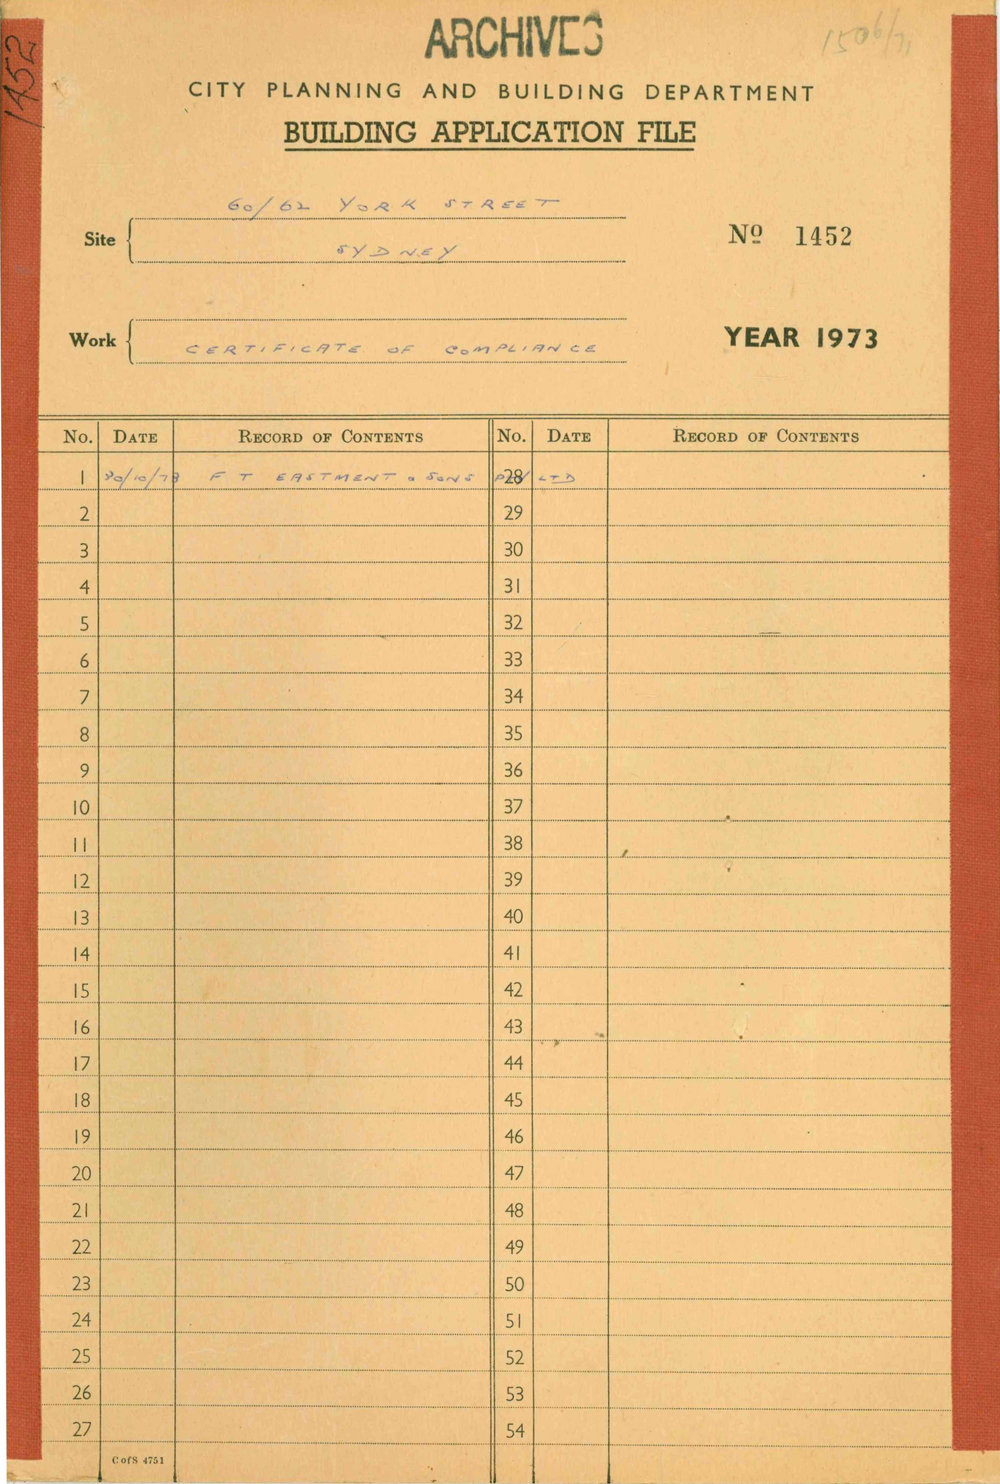 ARCHIVES
1452
CITY PLANNING AND BUILDING DEPARTMENT
BUILDING APPLICATION FILE
Site
60/62 YORK STREET
SYDNEY
Nº 1452
Work
CERTIFICATE OF COMPLIANCE
YEAR 1973
No. DATE RECORD OF CONTENTS No. DATE RECORD OF CONTENTS
1 30/10/73 F T EASTMENT & SONS PTY LTD 28
2 29
3 30
4 31
5 32
6 33
7 34
8 35
9 36
10 37
11 38
12 39
13 40
14 41
15 42
16 43
17 44
18 45
19 46
20 47
21 48
22 49
23 50
24 51
25 52
26 53
27 54
C of S 4751